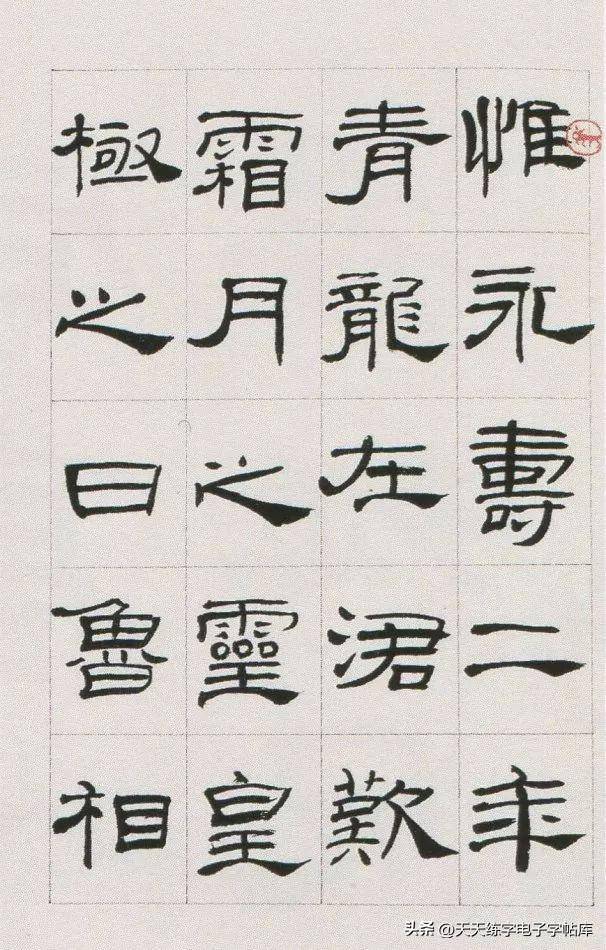 惟永壽二年
青龍在涒歎
霜月之靈皇
極之日魯相
头条 @天天练字电子字帖库